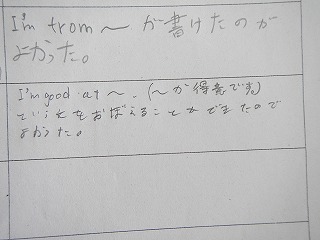 I'm from ～ が書けたのが
よかった。
I'm good at ～. (～が得意です。)
というえをおぼえることができたので
よかった。